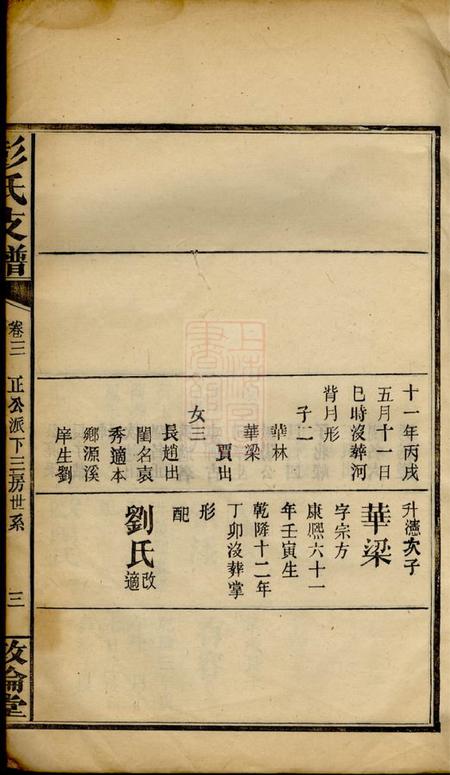 十一年丙戌
五月十一日
巳時沒葬河
背月形
子二
華林
華梁
賈出
女三
長趙出
閨名哀
秀適本
鄉源溪
庠生劉
升憑次子
華梁
字宗方
康熙六十一
年壬寅生
乾隆十二年
丁卯沒葬掌
形
配
劉氏 改適
彭氏支譜
卷三 正公派下三房世系 三
敦倫堂